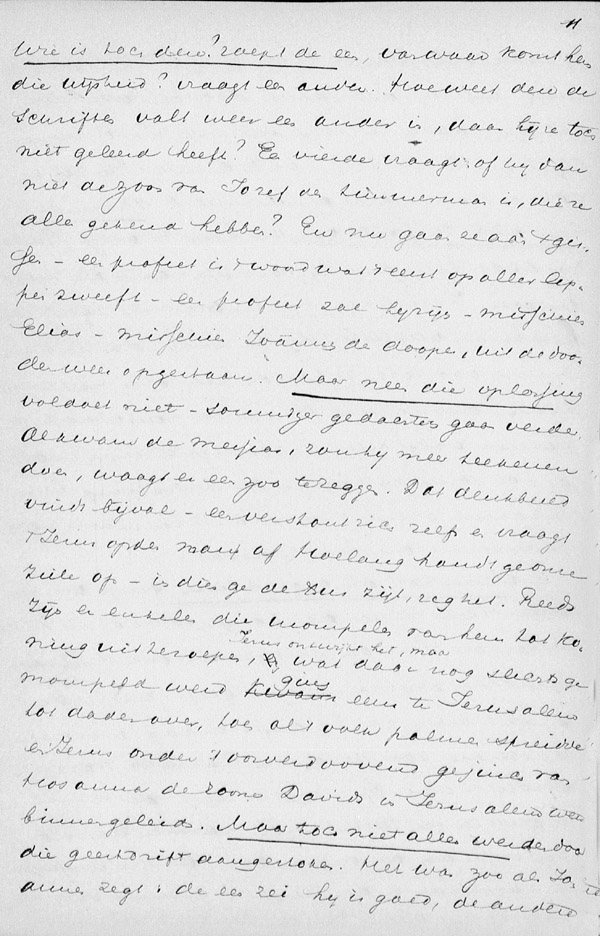 11
Wie is toch deze? roept de een, van waar komt hem
die wijsheid? vraagt een ander. Hoe weet deze de
schriften valt weer een ander in, daar hij ze toch
niet geleerd heeft? Een vierde vraagt of hij dan
niet de zoon van Jozef den timmerman is, dien ze
alle gekend hebben? En nu gaan ze aan 't gis-
sen – een profeet is 't woord wat 't eerst op aller lip-
pen zweeft – een profeet zal hij zijn – misschien
Elias – misschien Joannes de dooper, uit de doo-
den weer opgestaan. Maar neen die oplossing
voldoet niet – sommiger gedachten gaan verder.
Al kwam de Messias, zou hij meer teekenen
doen, waagt er een zoo te zeggen. Dat denkbeeld
vindt bijval – een verstout zich zelf en vraagt
Jezus op den man af Hoelang houdt ge onze
ziele op – indien ge de Xus zijt, zeg het. Reeds
zijn er enkelen die mompelen van hem tot Ko-
ning uit te roepen, Jezus ontwijkt het, maar wat daar nog slechts ge
mompeld werd ging eens te Jeruzalem
tot daden over, toen al 't volk palmen spreidde
en Jezus onder 't oorverdoovend gejuich van
Hosanna den Zoone Davids in Jeruzalem werd
binnengeleid. Maar toch niet allen werden door
die geestdrift aangestoken. Het was zoo als Jo-
annes zegt: de een zei hij is goed, de anderen